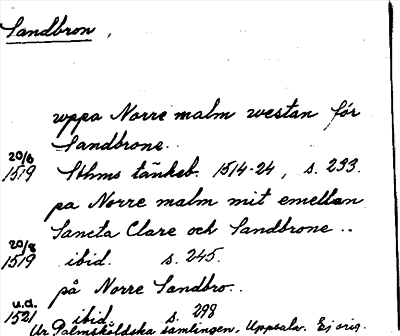 Sandbron,
uppa Norre malm westan för
Sandbrone..
20/6
1519 Sthms tänkeb. 1514-24, s. 233.
pa Norre malm mit emellan
Sancta Clare och Sandbrone..
20/8
1519 ibid. s. 245.
på Norre Sandbro..
u.d.
1521 ibid. s. 298
Ur Palmsköldska samlingen, Uppsala. Ej orig.